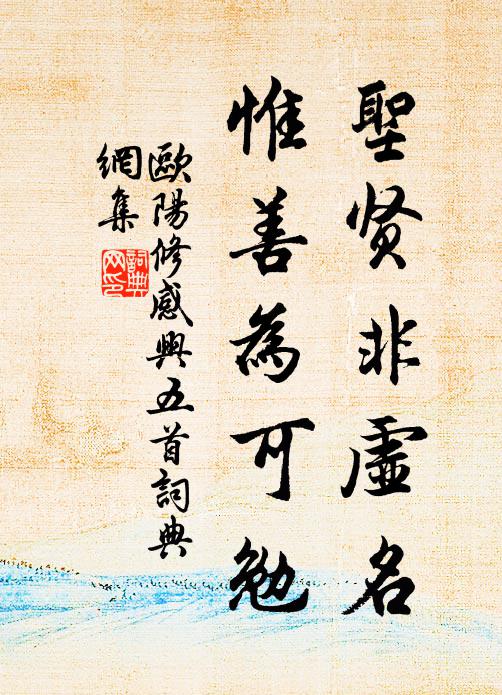 聖贤非虚名
惟善為可勉
歐陽修感興五首詞典
網集
詞典
网印